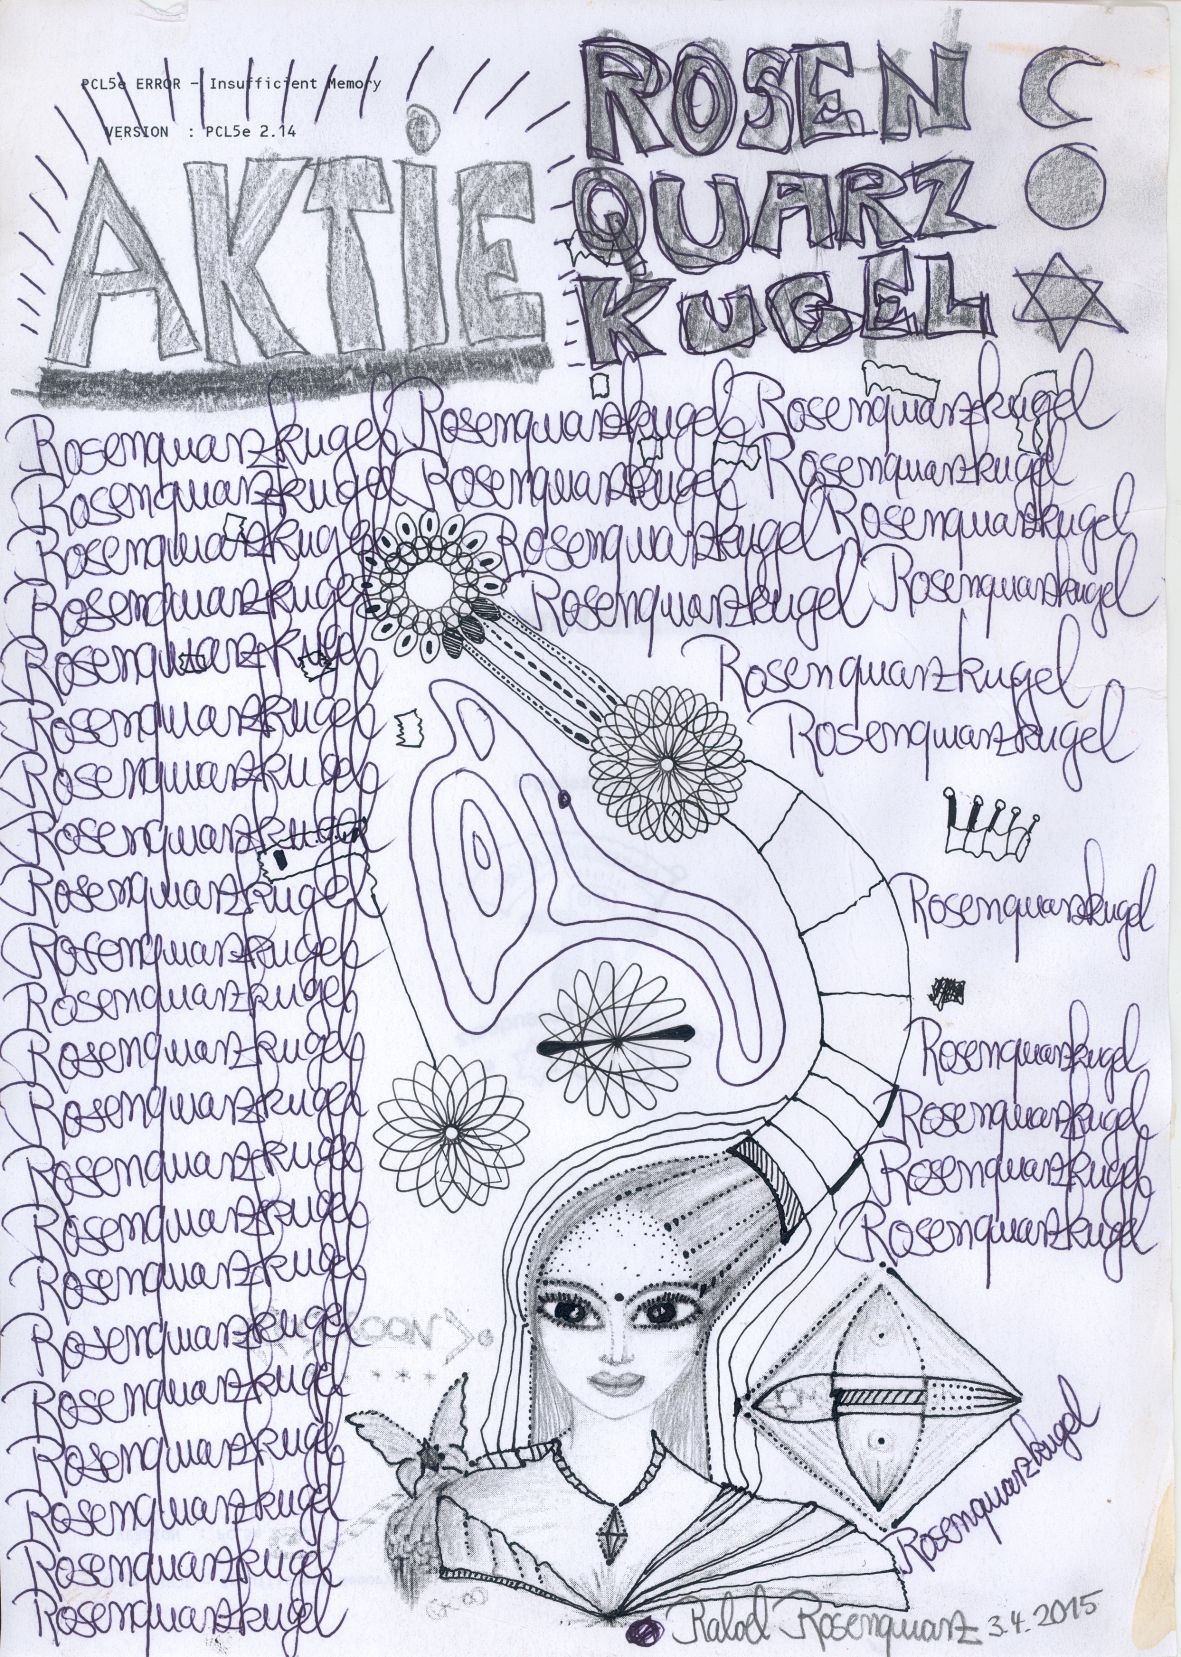 PCL5e ERROR - Insufficient Memory
VERSION : PCL5e 2.14
AKTiE
ROSEN
QUARZ
KUGEL
Rosenquarzkugel Rosenquarzkugel Rosenquarzkugel
Rosenquarzkugel Rosenquarzkugel Rosenquarzkugel
Rosenquarzkugel Rosenquarzkugel Rosenquarzkugel
Rosenquarzkugel Rosenquarzkugel Rosenquarzkugel
Rosenquarzkugel Rosenquarzkugel
Rosenquarzkugel Rosenquarzkugel
Rosenquarzkugel
Rosenquarzkugel
Rosenquarzkugel Rosenquarzkugel
Rosenquarzkugel
Rosenquarzkugel
Rosenquarzkugel Rosenquarzkugel
Rosenquarzkugel Rosenquarzkugel
Rosenquarzkugel Rosenquarzkugel
Rosenquarzkugel Rosenquarzkugel
Rosenquarzkugel
Rosenquarzkugel
Rosenquarzkugel
Rosenquarzkugel
Rosenquarzkugel
Rosenquarzkugel Rosenquarzkugel
Rosenquarzkugel
Rosenquarz 3.4.2015